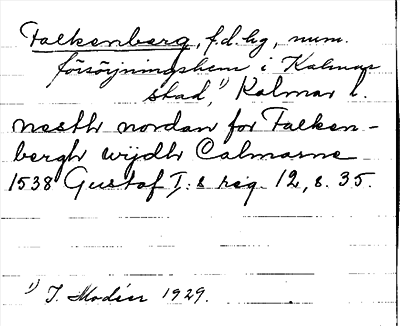 Falkenberg, f.d. lg, num.
försörjningshem i Kalmar
stad,¹⁾ Kalmar l.
nesth nordan for Falken-
bergh wijdh Calmarne
1538 Gustaf I:s reg. 12, s. 35.
¹⁾ I. Modéer 1929.